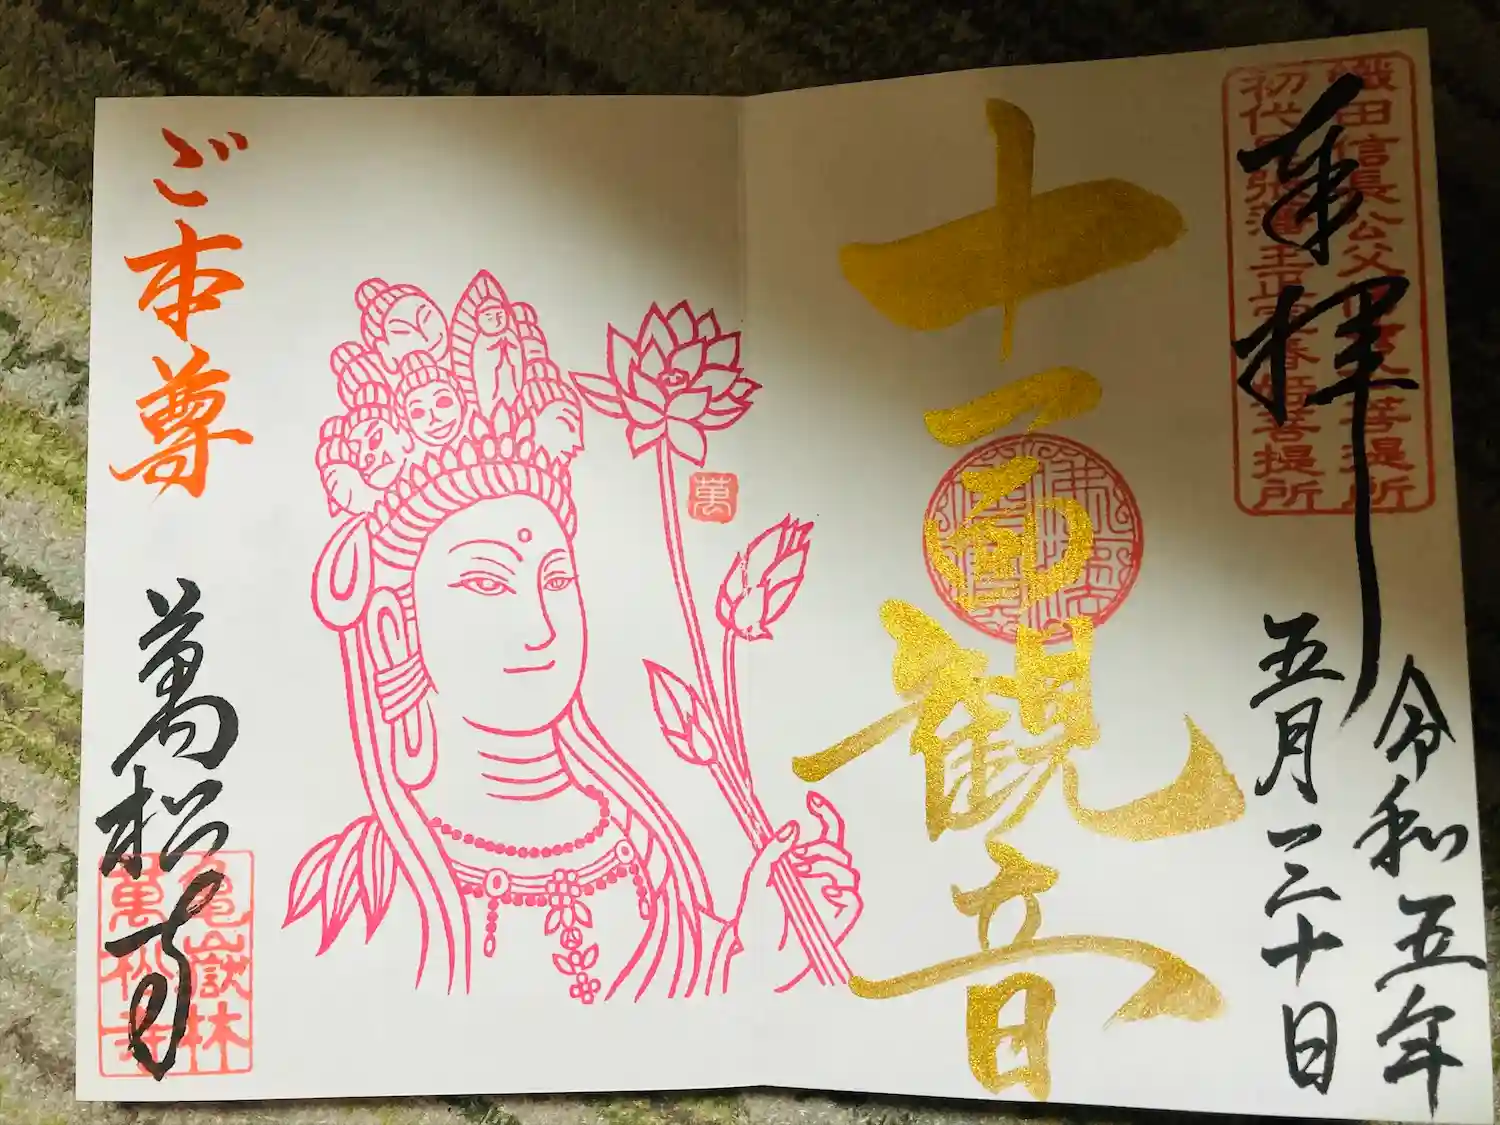 奉拝
令和五年
五月三十日
織田信長公父
初代尾張藩主
菩提所
菩提所
十一面観音
萬
ご本尊
萬松寺
亀嶽林
萬松寺